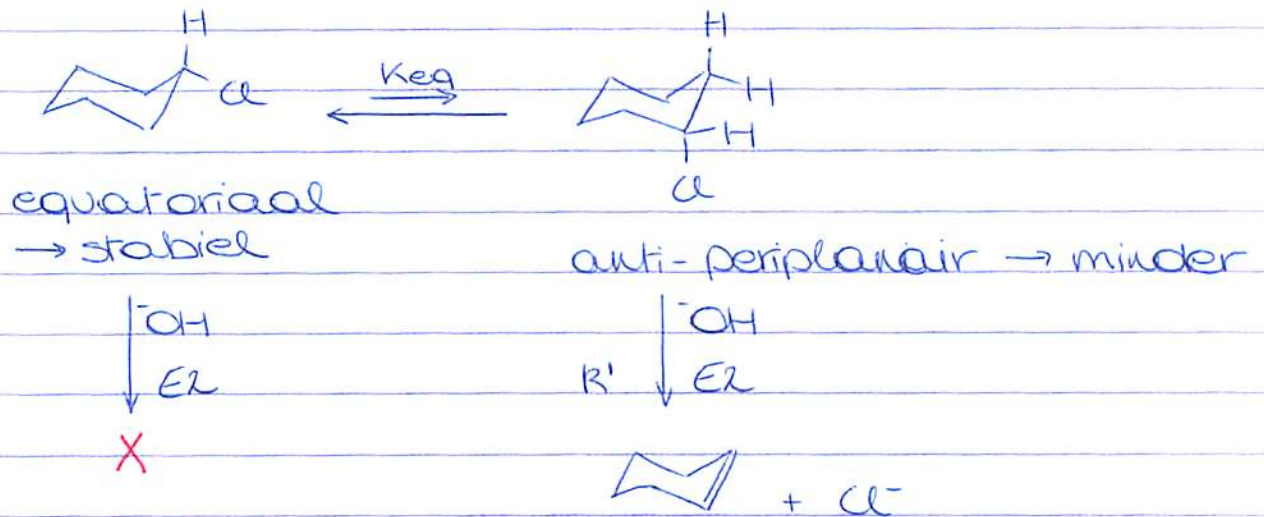 H H
Cl Keq H
H
Cl
equatoriaal
→ stabiel anti-periplanair → minder
⁻OH ⁻OH
E2 k' E2
X
+ Cl⁻